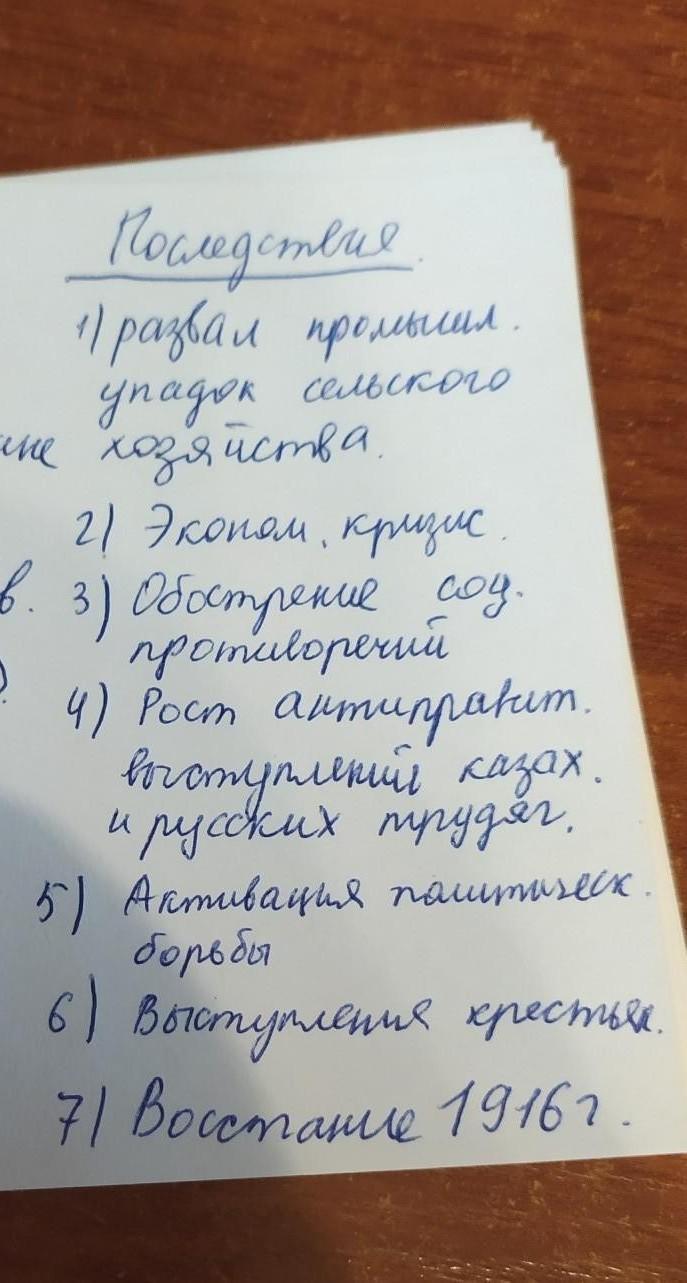 Последствия.
1) развал промышл.
упадок сельского
хозяйства.
2) Эконом. кризис.
в. 3) Обострение соц.
противоречий
4) Рост антиправит.
выступлений казах.
и русских трудяг.
5) Активация политическ.
борьбы
6) Выступления крестьян.
7) Восстание 1916 г.